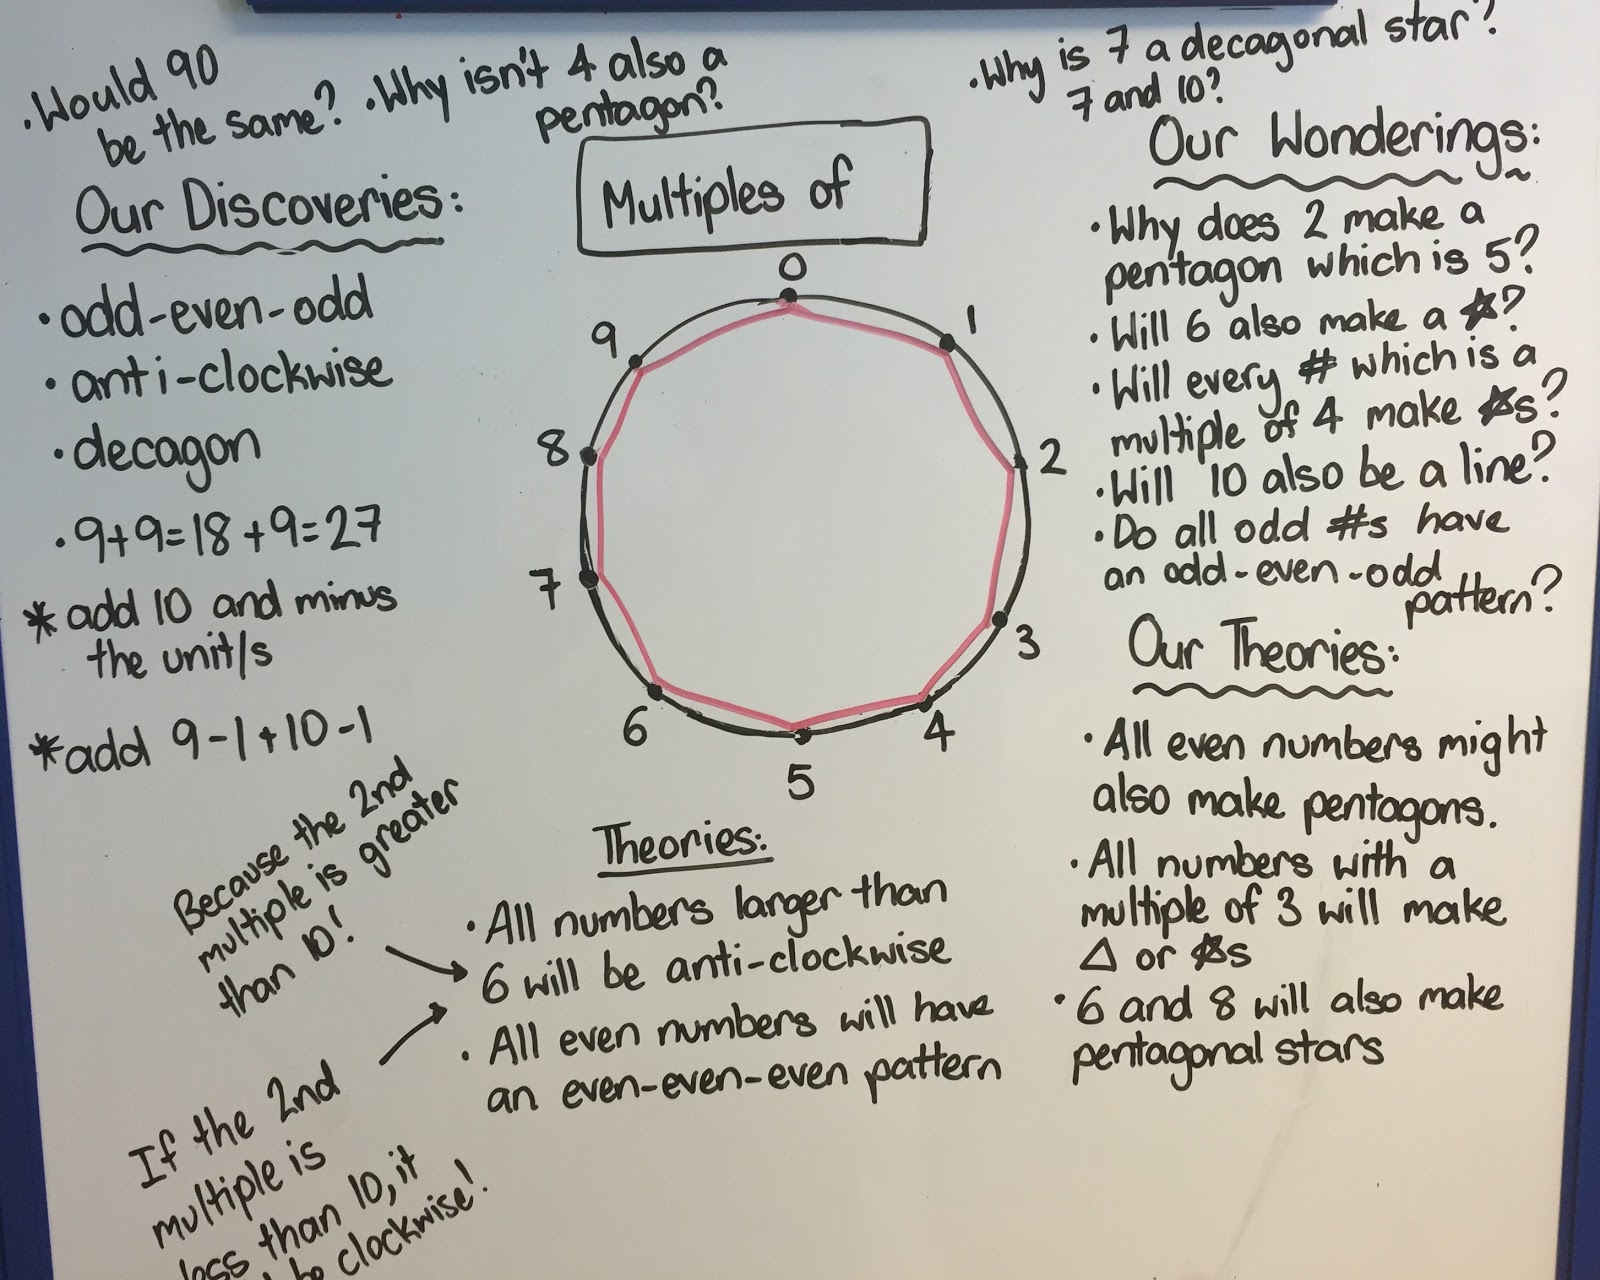 .Would 90
be the same?
.Why isn't 4 also a
pentagon?
.Why is 7 a decagonal star?
7 and 10?
Our Discoveries:
•odd-even-odd
•anti-clockwise
•decagon
•9+9=18+9=27
*add 10 and minus
the unit/s
*add 9-1+10-1
Because the 2nd
multiple is greater
than 10!
If the 2nd
multiple is
less than 10, it
be clockwise!
Multiples of
0
1
2
3
4
5
6
7
8
9
Theories:
•All numbers larger than
6 will be anti-clockwise
•All even numbers will have
an even-even-even pattern
Our Wonderings:
•Why does 2 make a
pentagon which is 5?
•Will 6 also make a ☆?
•Will every # which is a
multiple of 4 make ☆s?
•Will 10 also be a line?
•Do all odd #s have
an odd-even-odd
pattern?
Our Theories:
•All even numbers might
also make pentagons.
•All numbers with a
multiple of 3 will make
△ or ☆s
•6 and 8 will also make
pentagonal stars